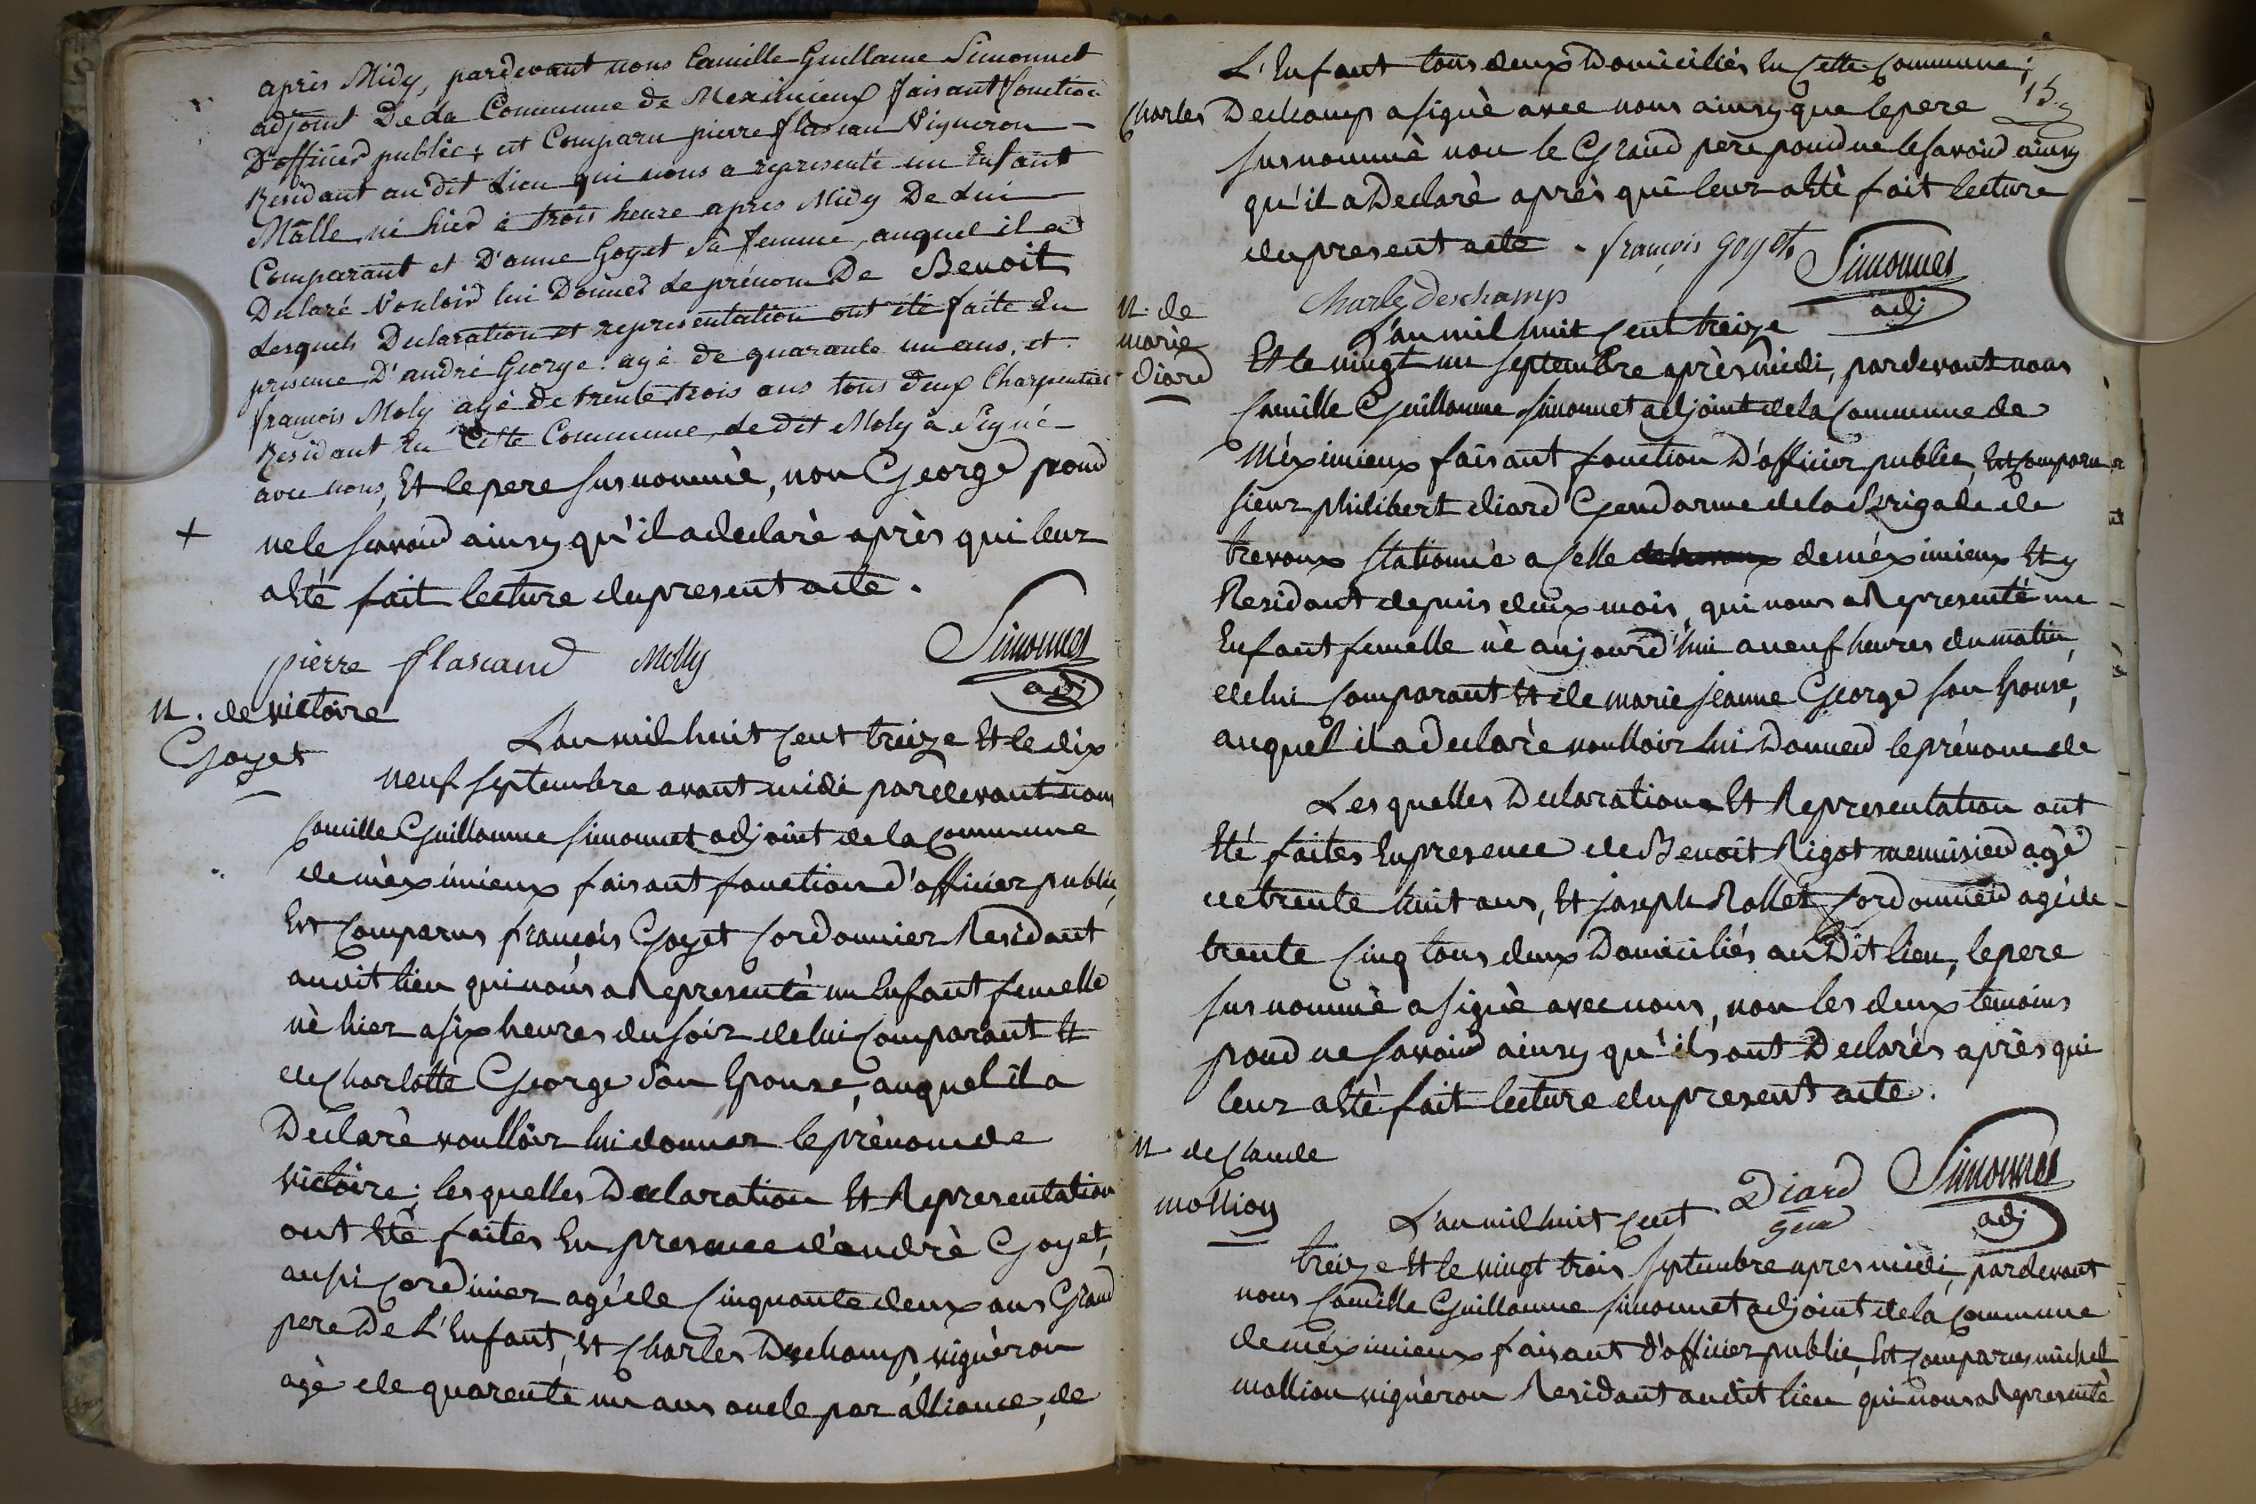 après Midy, pardevant nous Camille Guillaume Simonnet
adjoint De la Commune de Meximieux faisant fonction
D'officier public, est Comparu pierre flascan Vigneron
Résidant au dit Lieu qui nous a representé un Enfant
Mâlle né hier à trois heure apres Midy De Lui
Comparant et D'anne Goyet Sa femme, auquel il a
Declaré Vouloir lui Donner Le prénom De Benoit
Lesquels Declaration et representation ont été faite En
presence D'andré George. agé de quarante un ans, et
françois Moly agé de trente trois ans tous deux Charpentier
Residant En Cette Commune, Le dit Moly à Signé
avec nous, Et le pere susnommè, non George pour
+ ne le savoir ainsy qu'il a declarè après qui leur
a Etè fait lecture du present acte.
pierre flascand Molly Simonnet
adj
N. de victoire
Goyet
L'an mil huit cent treize Et le dix
neuf septembre avant midi pardevant nous
Camille Guillaume Simonnet adjoint de la commune
de mèximieux faisant fonction d'officier public,
Est comparus françois Goyet cordonnier Residant
au dit lieu qui nous a Representè un Enfant femelle
nè hier a six heures du soir de lui comparant Et
de charlotte George Son Epouse, auquel il a
Declarè voulloir lui donner le prènom de
victoire; les quelles Declaration Et Representation
ont Etè faites En presence d'andrè Goyet,
aussi cordinier agè de cinquante deux ans Grand
pere De L'Enfant, Et Charles Dechamp, vignèron
agè de quarente un ans oncle par alliance, de
L'Enfant tous deux Domiciliés En Cette Commune;
15.
Charles Dechamp a signè avec nous ainsy que le pere
susnommè non le Grand pere pour ne le savoir ainsy
qu'il a Declarè après qui leur a Etè fait lecture
du present acte. françois goyet Simonnet
adj
Charles deschamp
N. de
marie
Diard
L'an mil huit cent treize
Et le vingt un septembre après midi, pardevant nous
Camille Guillaume Simonnet adjoint de la Commune de
Mèximieux faisant fonction D'officier public, Est comparu
sieur philibert diard Gendarme de la Brigade de
trevoux stationnè a celle de mèximieux Et y
Residant depuis deux mois, qui nous a Representé un
Enfant femelle nè aujourd'hui a neuf heures du matin,
de lui comparant Et de marie jeanne George son Epouse,
auquel il a declarè voulloir lui Donner le prénom de
Les quelles Declaration Et Representation ont
Eté faites En presence de Benoit Rigot menuisier agè
de trente huit ans, Et joseph Rollet cordonnier agè de
trente cinq tous deux Domiciliés au Dit lieu, le pere
sus nommè a signè avec nous, non les deux temoins
pour ne savoir ainsy qu'ils ont Declarès après qui
leur a Etè fait lecture du present acte.
Diard Simonnet
adj
N. de claude
mollion
L'an mil huit cent
treize Et le vingt trois septembre apres midi, pardevant
nous Camille Guillaume Simonnet adjoint de la commune
de mèximieux faisant d'officier public, Est comparus michel
mollion vignèron Residant au dit lieu qui nous a Representè